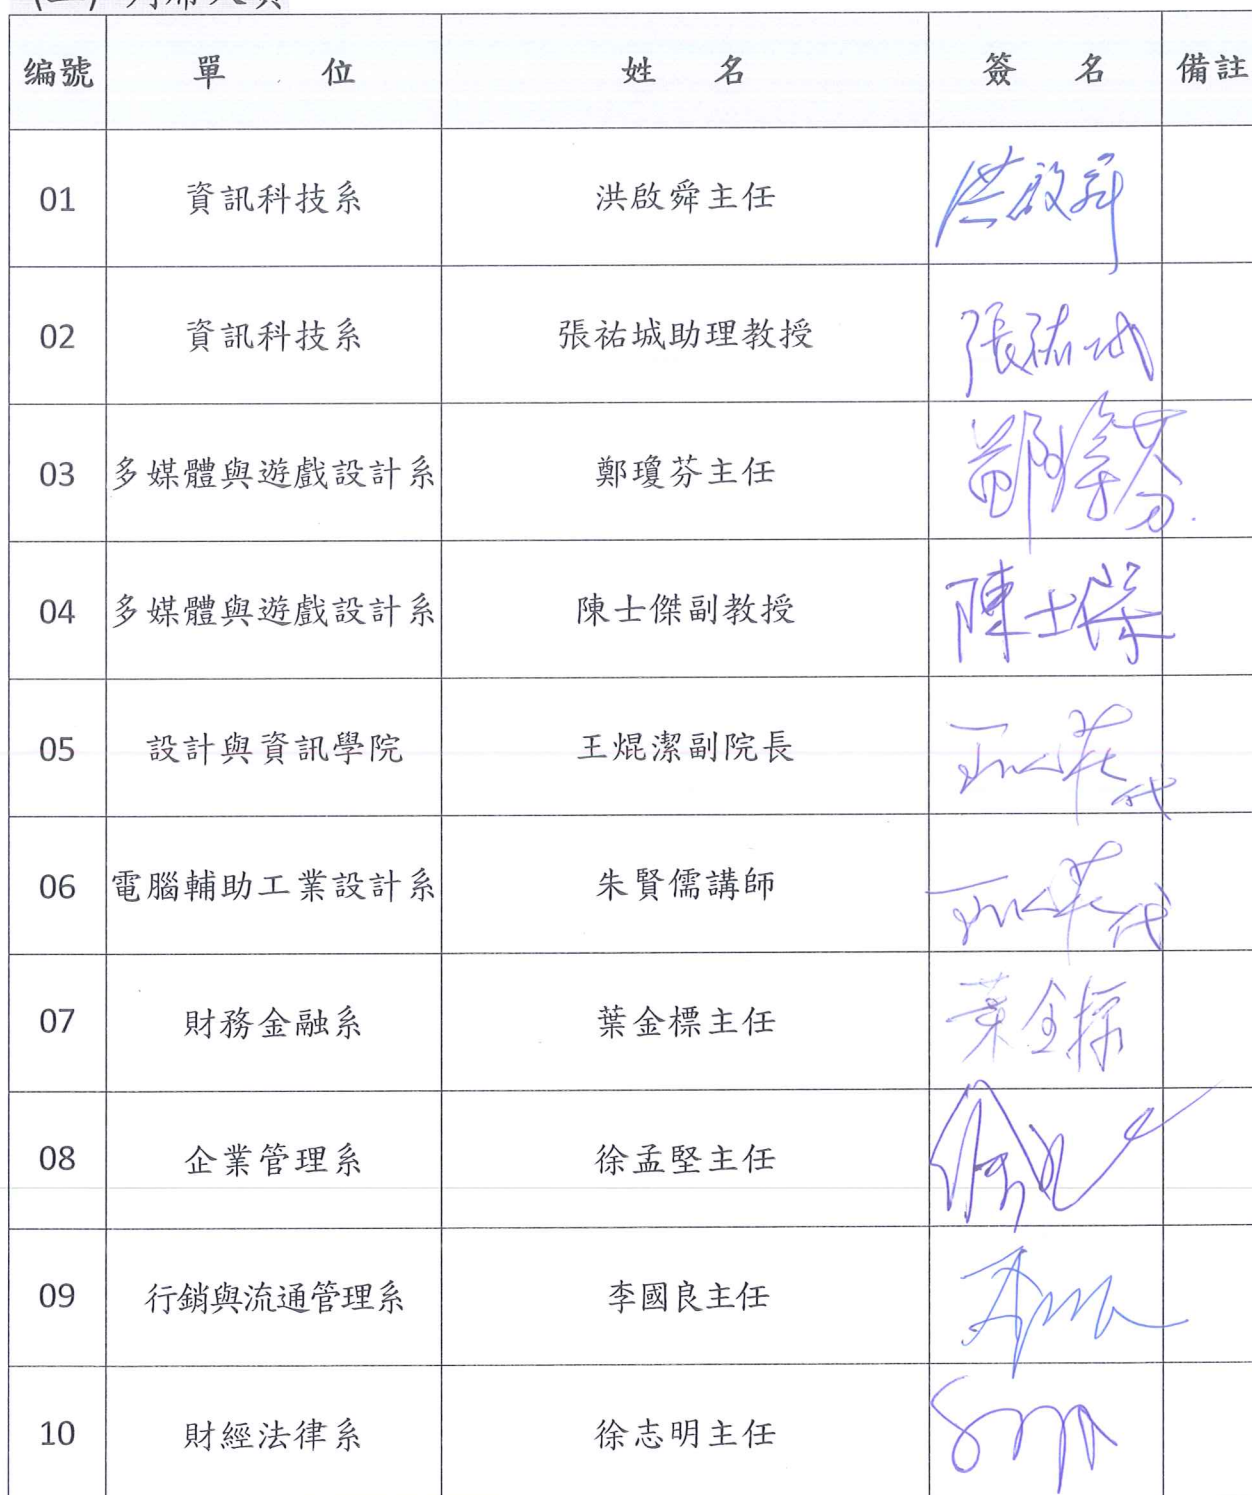 (二) 列席人員
编號 單 位 姓 名 簽 名 備註
01 資訊科技系 洪啟舜主任 洪啟舜
02 資訊科技系 張祐城助理教授 張祐城
03 多媒體與遊戲設計系 鄭瓊芬主任 鄭瓊芬
04 多媒體與遊戲設計系 陳士傑副教授 陳士傑
05 設計與資訊學院 王焜潔副院長 代
06 電腦輔助工業設計系 朱賢儒講師 代
07 財務金融系 葉金標主任 葉金標
08 企業管理系 徐孟堅主任
09 行銷與流通管理系 李國良主任
10 財經法律系 徐志明主任